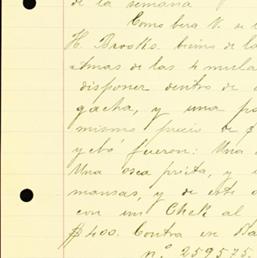 de la semana
Como bera V. se
H. Brooks. bienes de la
Almas de las 4 mula
disponer dentro de
gacha, y una pa
mismo precio de $
y ebó fueron: Una
Una osca prieta, y
mansas, y de este
con un Chek al
$400. Contra en Ha
n.º 259575.